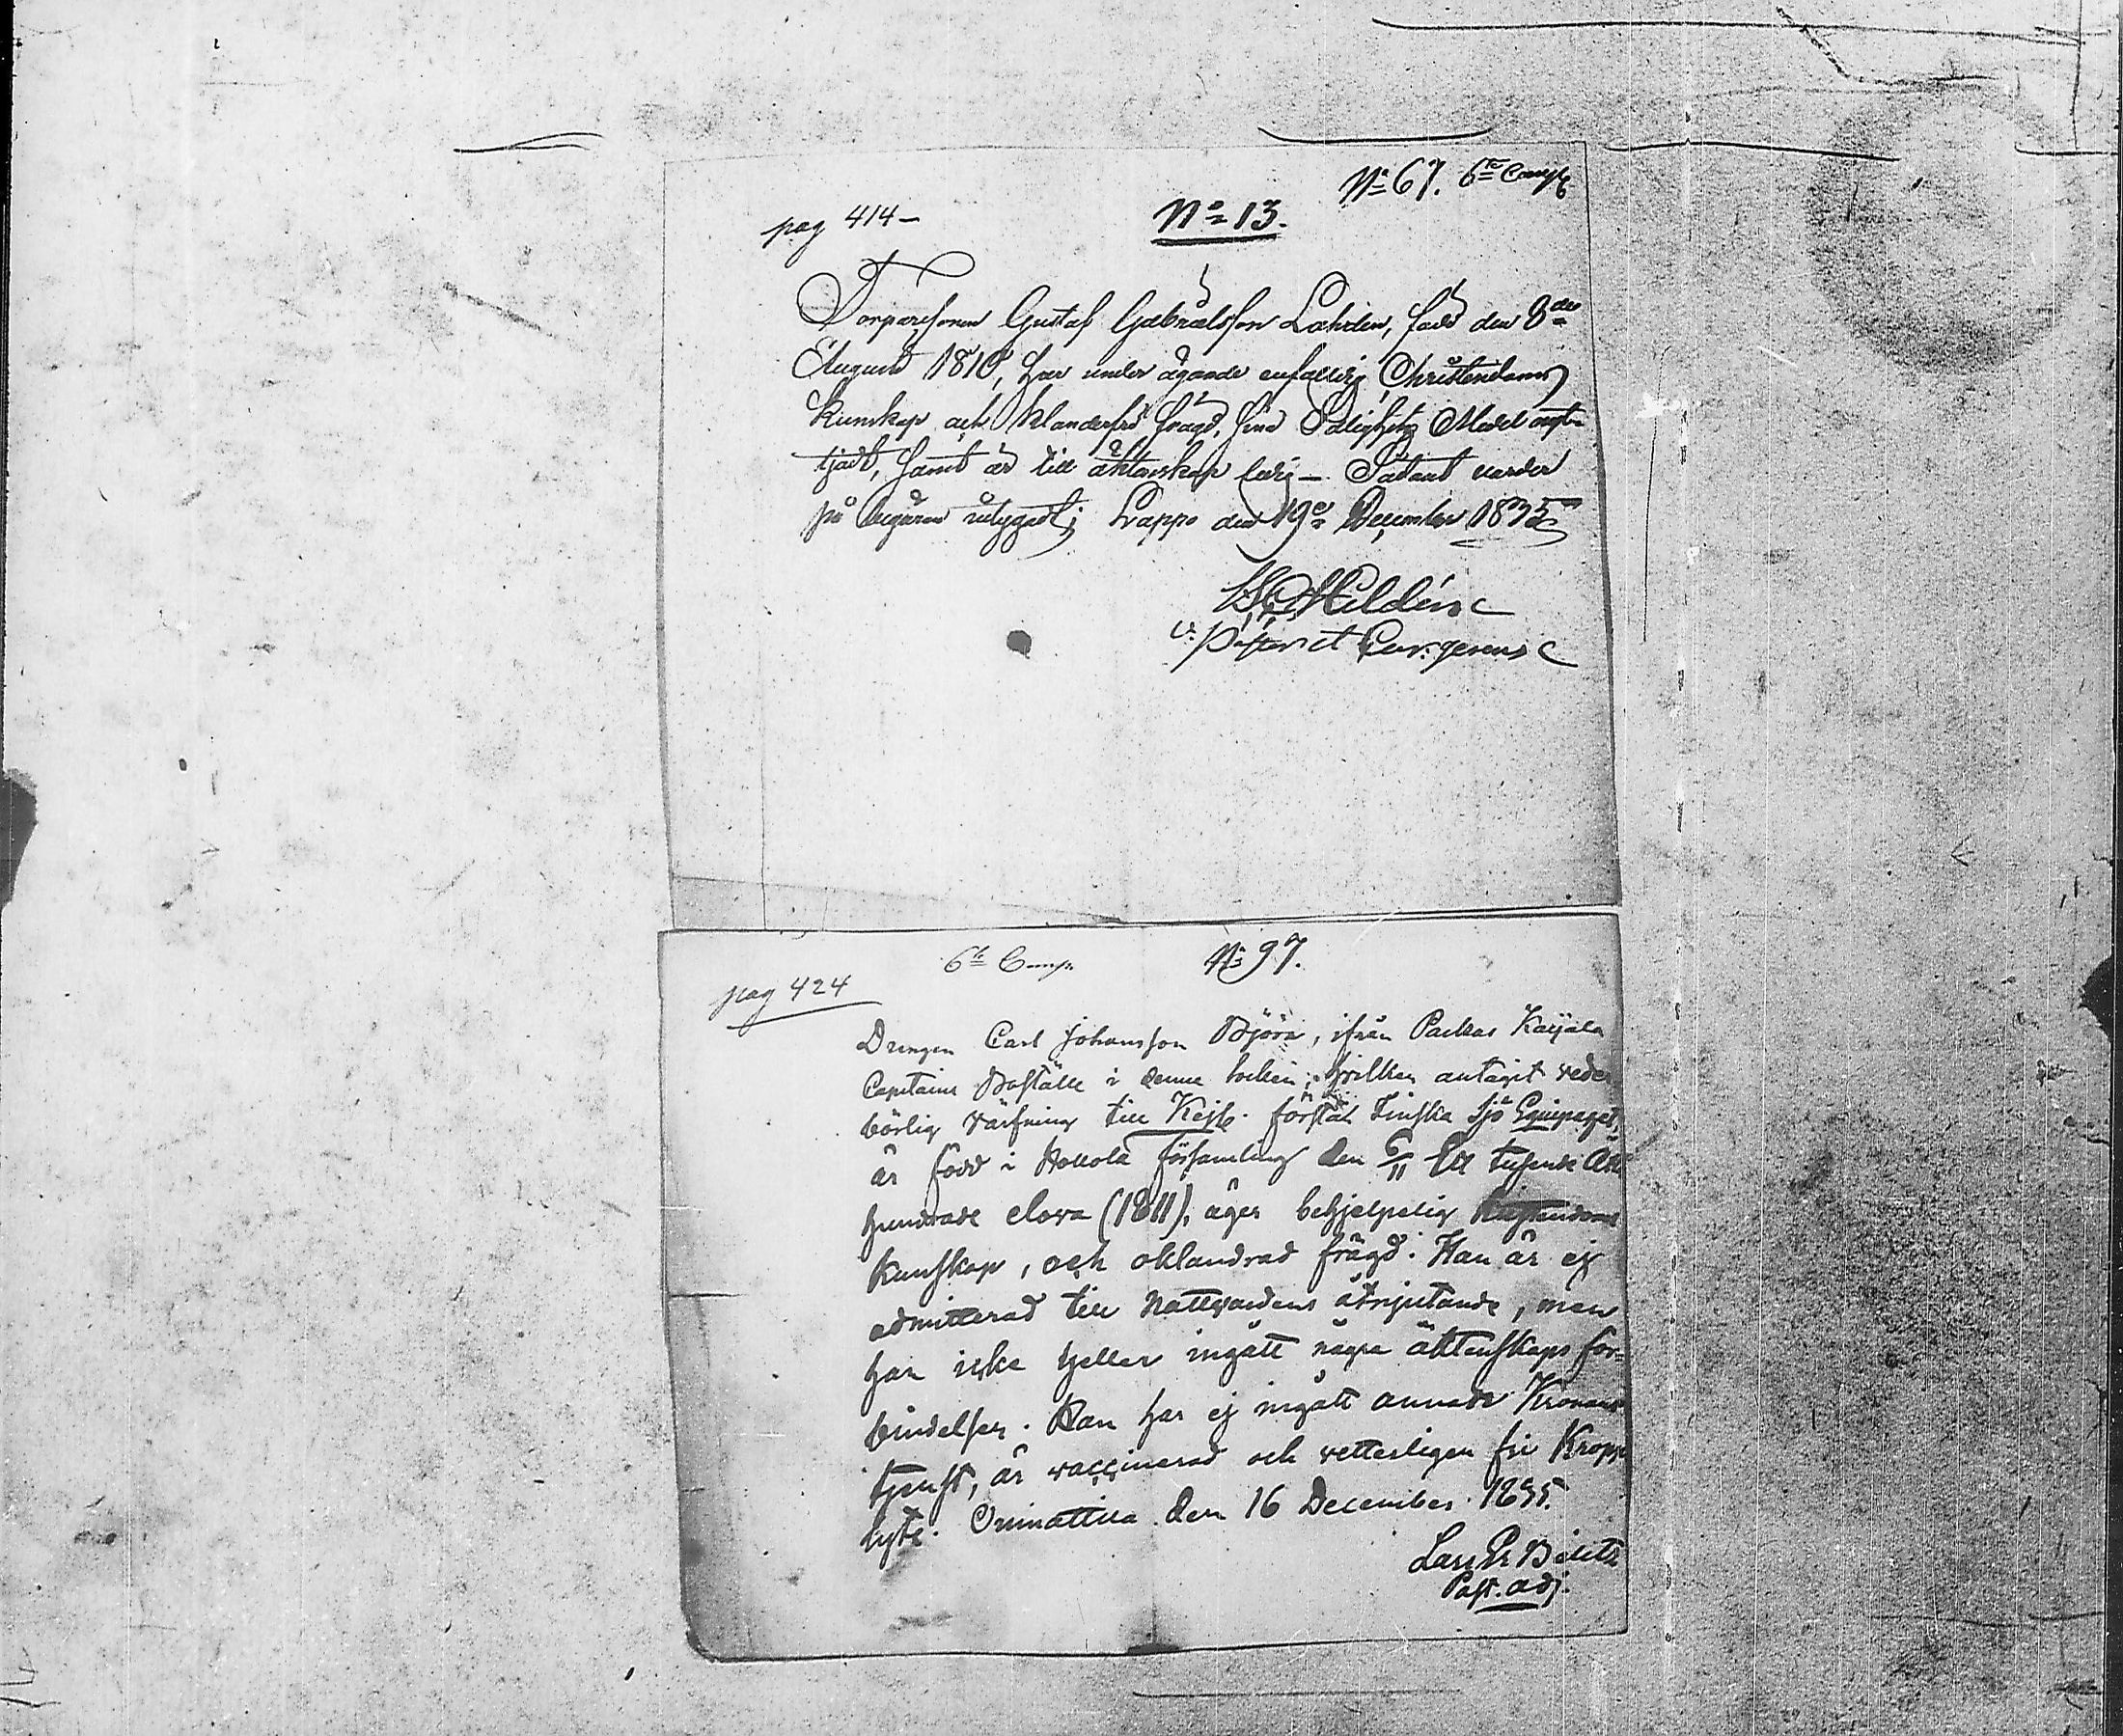 No 67. 6te Comp
pag 414 –
No 13.
Torparesonen Gustaf Gabrielsson Lahden, född den 8de
Augusti 1810, har under ägande enfaldig Christendoms
kunskap och oklanderlig frägd, sina Salighets Medel
samt är till äktenskap ledig – Sådant warder
på begäran Lappo den 19e December 1835
v. Pastor et Cur. gerens
6te Comp. No 97.
pag 424
Drengen Carl Johansson Björn, ifrån Packas Karjala
Capitains Boställe i denne Socken, hvilken antagit veder
börlig värfning till Kejs. första Finska Sjö Equipaget,
är född i Hollola församling den 6/11 Ett tusende Åtta
hundrade elova (1811), äger behjelpelig Kristendoms
kunskap, och oklandrad frägd. Han är ej
admitterad till Nattvardens åtnjutande, men
har icke heller ingått några äktenskaps för=
bindelser. Han har ej ingått annan Kronans
tjenst, är vaccinerad och vetterligen fri Kropps
lyte. Orimattila den 16 December 1835.
Lars
Past. adj.